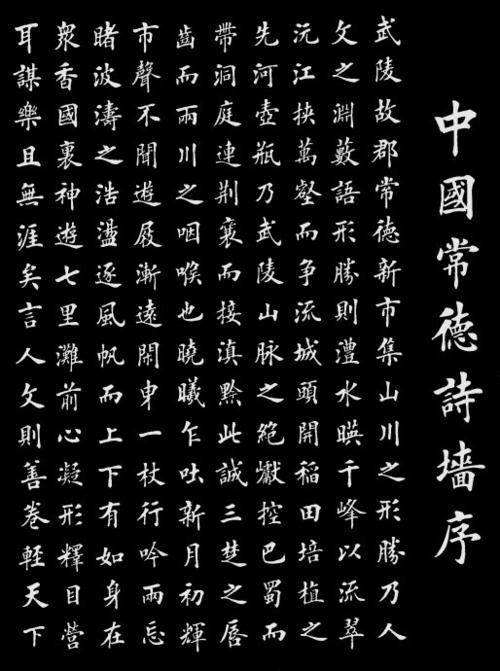 中國常德詩墻序
武陵故郡常德新市集山川之形勝乃人
文之淵藪語形勝則澧水暎千峰以流翠
沅江挾萬壑而争流城頭開稻田培植之
先河壺瓶乃武陵山脉之絶巘控巴蜀而
帶洞庭連荆襄而接滇黔此誠三楚之唇
齒而兩川之咽喉也曉曦乍吐新月初輝
市聲不聞遊屐漸遠閑曳一杖行吟兩忘
睹波濤之浩盪逐風帆而上下有如身在
衆香國裏神遊七里灘前心凝形釋目營
耳謀樂且無涯矣言人文則善卷輕天下